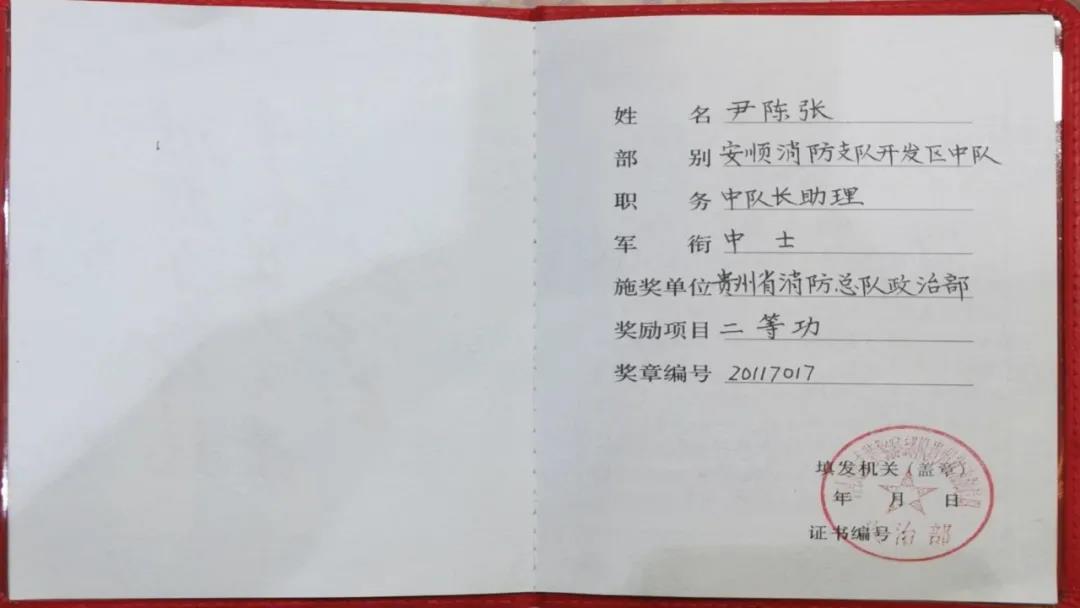 姓 名 尹陈张
部 别 安顺消防支队开发区中队
职 务 中队长助理
军 衔 中 士
施奖单位 贵州省消防总队政治部
奖励项目 二等功
奖章编号 20117017
填发机关（盖章）
年 月 日
证书编号
政治部